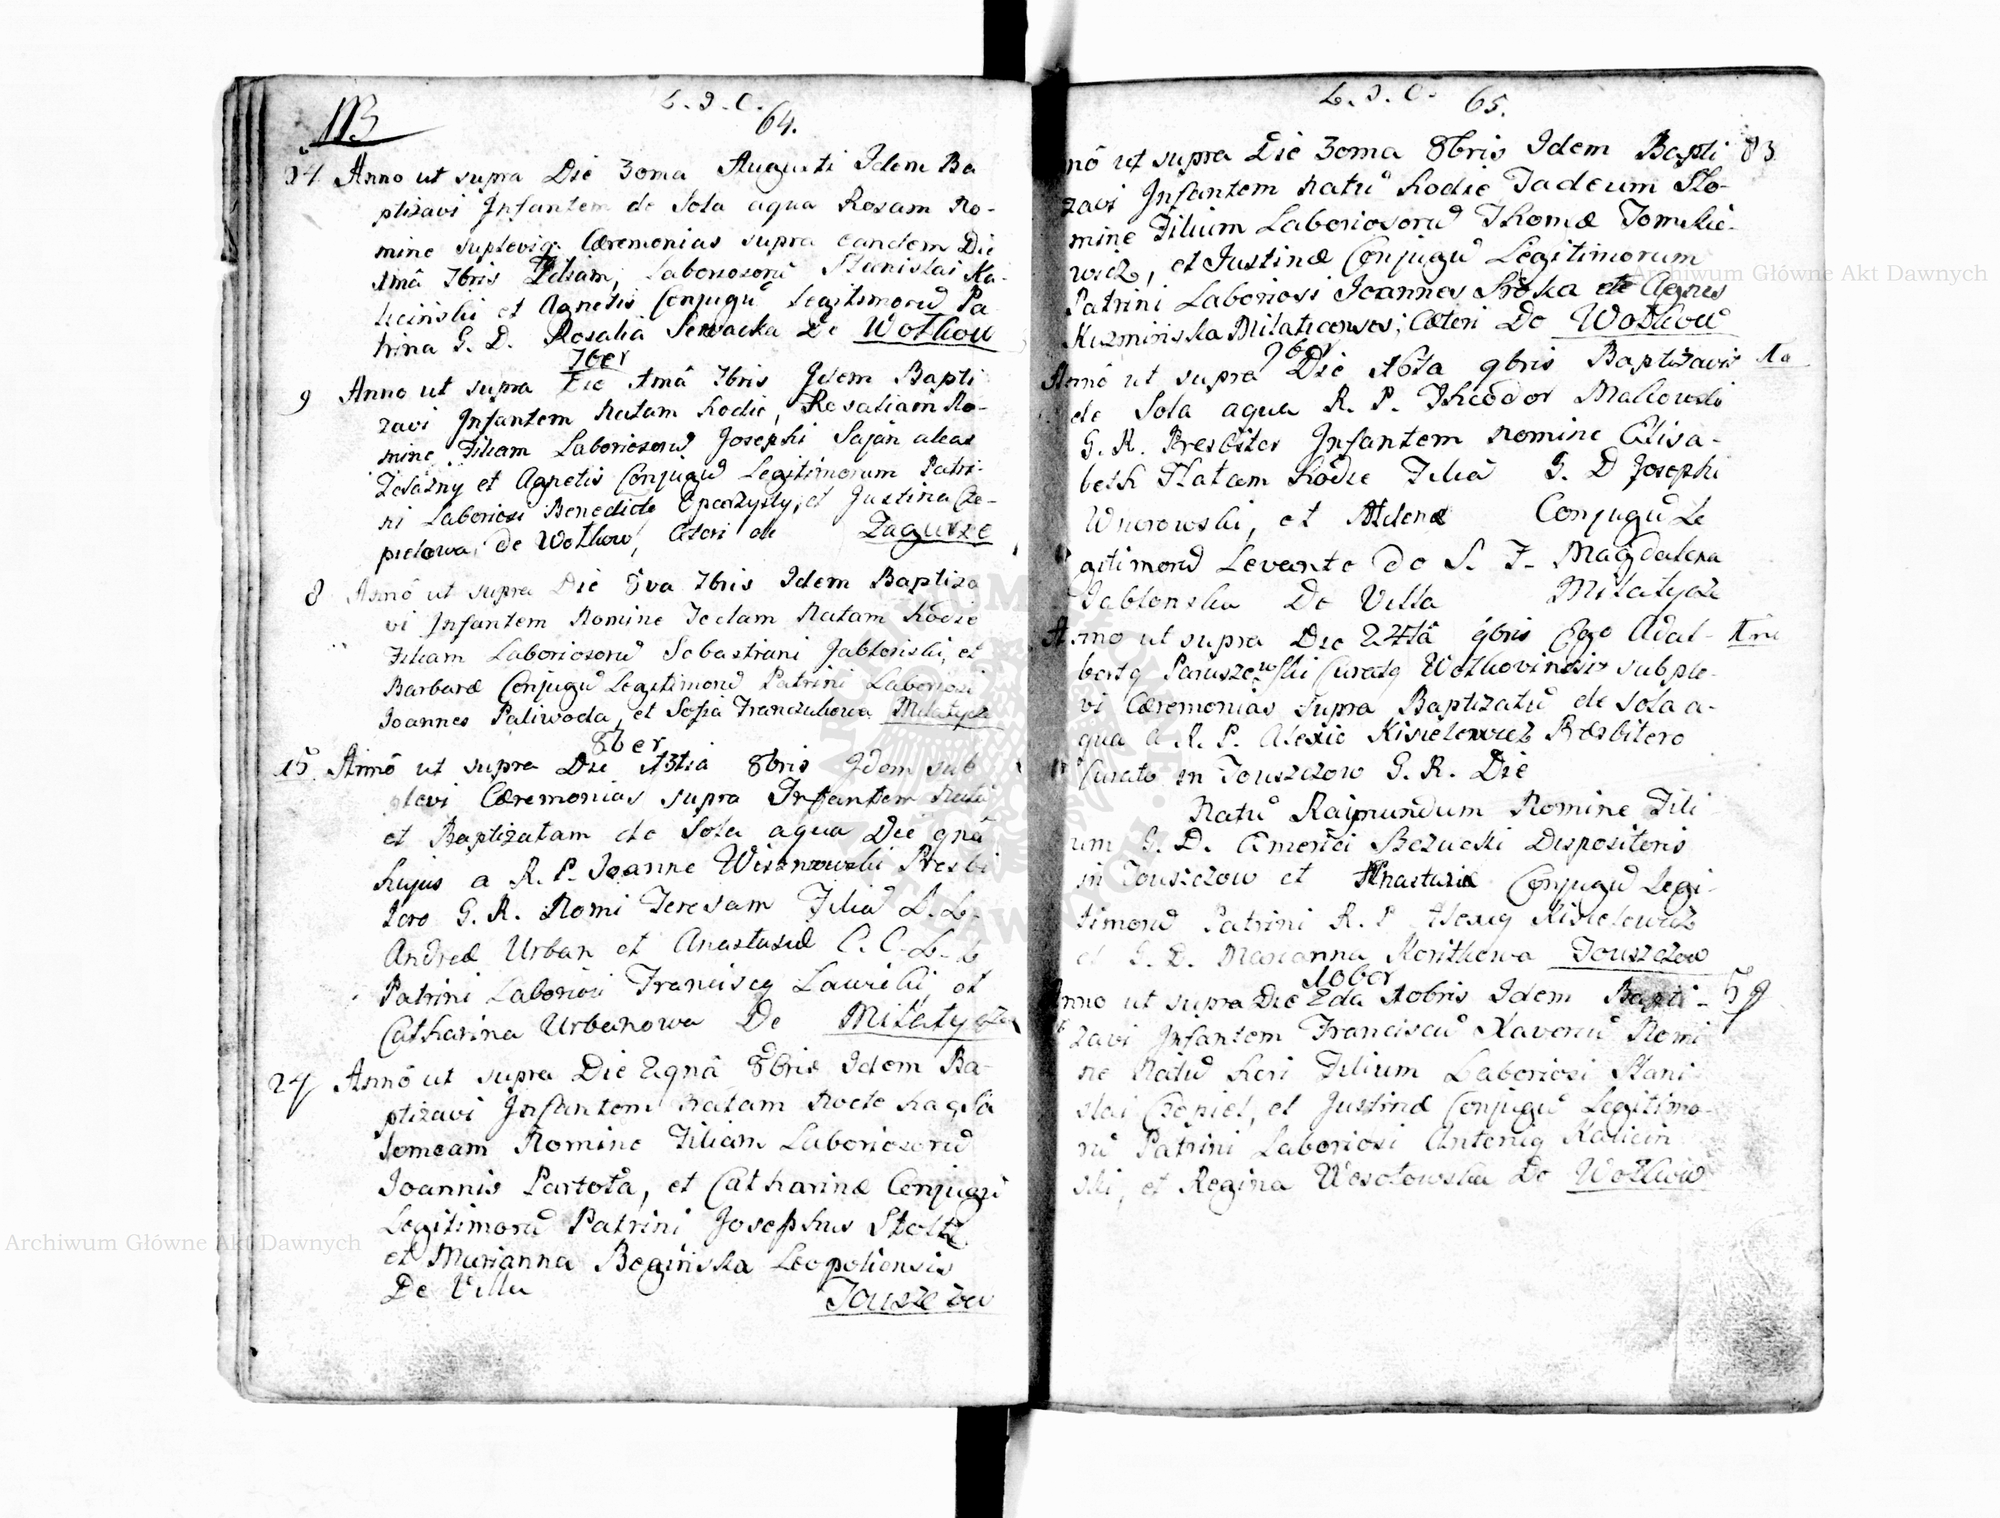 113
L. J. C.
64.
34 Anno ut supra Die 30ma Augusti Idem Ba
ptizavi Infantem de Sola aqua Rosam No-
mine supleviq Cæremonias supra eandem Die
1mâ 7bris Filiam, Laboriosorũ Stanislai Ka-
liciński et Agnetis Conjugũ Legitimorũ Pa
trina G. D. Rosalia De Wołkow
7ber
9 Anno ut supra Die 1mâ 7bris Idem Bapti
zavi Infantem Natam hodie, Rosaliam No-
mine Filiam Laboriosorũ Josephi Sajan alias
Żelazny et Agnetis Conjugũ Legitimorum Patri-
ni Laboriosi Benedicto et Justina Cze-
pielowa; de Wołkow, Cæteri de Zagurze
8 Annô ut supra Die 8va 7bris Idem Baptiza
vi Infantem Nomine Teclam Natam hodie
Filiam Laboriosorũ Sebastiani Jabłoński, et
Barbaræ Conjugũ Legitimorũ Patrini Laboriosi
Joannes Paliwoda, et Sofia Franczukowa Milatycze
8ber
15 Annô ut supra Die 13tia 8bris Idem sub
plevi Cæremonias supra Infantem Natã
et Baptizatam de Sola aqua Die 9nâ
hujus a R. P. Joanne Wisznowski Presbi
tero G. R. Nomi Teresam Filiã L. L.
Andreæ Urban et Anastasiæ C. C. L. L.
Patrini Laboriosi Franciscq Lawicki, et
Catharina Urbanowa De Milatycze
24 Annô ut supra Die 29nâ 8bris Idem Ba-
ptizavi Infantem Natam Nocte hac Sa
lomeam Nomine Filiam Laboriosorũ
Joannis Partoła, et Catharinæ Conjugũ
Legitimorũ Patrini Josephus Stoltz
et Marianna Begińska Leopoliensis
De Villa Touszczow
L. J. C. 65.
nô ut supra Die 30ma 8bris Idem Bapti 83
zavi Infantem Natũ hodie Tadeum No-
mine Filium Laboriosorũ Thomæ Tomkie-
wicz, et Justinæ Conjugũ Legitimorum
Patrini Laboriosi Joannes Sroka et Agnes
Kuzmińska Milaticenses; Cæteri De Wołkow
9ber
Annô ut supra Die 16ta 9bris Baptizavit
de Sola aqua R. P. Theodor Malicwski
G. R. Presbiter Infantem Nomine Elisa-
beth Natam hodie Filiã G. D Josephi
Wnorowski, et Helenæ Conjugũ Le
gitimorũ Levante de S. F. Magdalena
Jablonska De Villa Milatycze
Anno ut supra Die 24tâ 9bris Ego Adal-
bertq Paruszewski Curatq Wołkoviensis subple-
vi Cæremonias supra Baptizatũ de sola a-
qua a R. P. Alexio Kisielewicz Presbitero
Curato in Touszczow G. R. Die
Natũ Raimundum Nomine Fili
um G. D. Bezucki Dispositoris
in Touszczow et Anastasiæ Conjugũ Legi-
timorũ Patrini R. P Alexiq Kisielewicz
et G. D. Marianna Koritkowa Touszczow
10ber
Anno ut supra Die 2da 10bris Idem Bapti- 59
zavi Infantem Franciscũ Xaveriũ Nomi
ne Natũ heri Filium Laboriosi Stani
slai Czepiel, et Justinæ Conjugũ Legitimo-
rũ Patrini Laboriosi Antoniq Kalicin
ski, et Regina Wesołowska De Wołkow
Archiwum Główne Akt Dawnych
Archiwum Główne Akt Dawnych